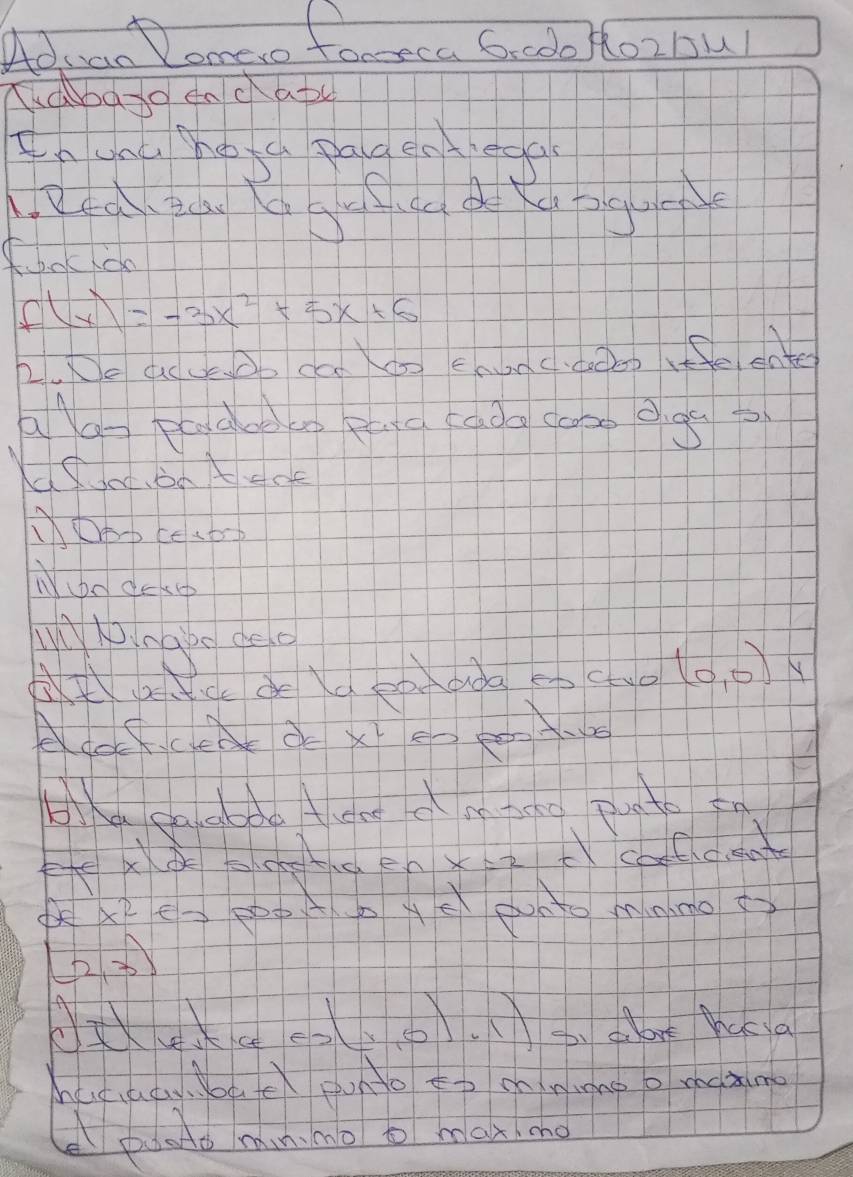 Adrian Romero Fonseca Grado
Trabajo en clase
En una hoja para entregar
1. Realizar la grafica de la siguiente
función
f(x) = -3x² + 5x + 6
2. De acuerdo con los enunciados referentes
a las parabolas para cada caso diga si
la función tiene
i) Dos ceros
ii) un cero
iii) Ningun cero
a) El vertice de la es (0,0) y
el coeficiente de x² es positivo
b) La parabola tiene el mismo punto en
eje x de simetria en x=2 el coeficiente
de x² es positivo y el punto minimo es
(2,3)
c) El vertice es si abre hacia
hacia arriba el punto es minimo o maximo
el punto minimo o maximo